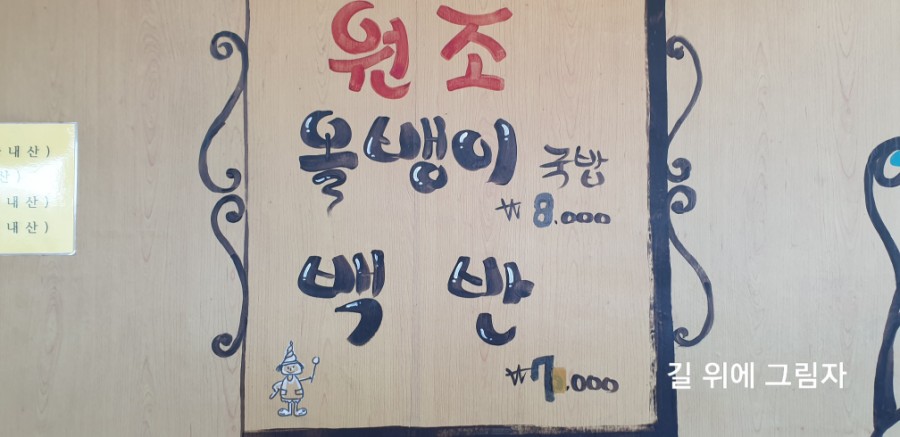 원조
올뱅이 국밥
₩8.000
백반
₩7.000
내산)
산)
내산)
내산)
길 위에 그림자